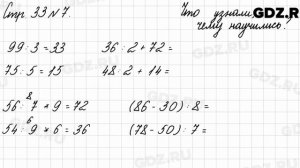 Стр. 33 № 7.
Что узнали,
чему научились?
GDZ.RU
99 : 3 = 33
36 : 2 + 72 =
75 : 5 = 15
48 : 2 + 14 =
8
56 : 7 * 9 = 72
(86 - 30) : 8 =
6
54 : 9 * 6 = 36
(78 - 50) : 7 =